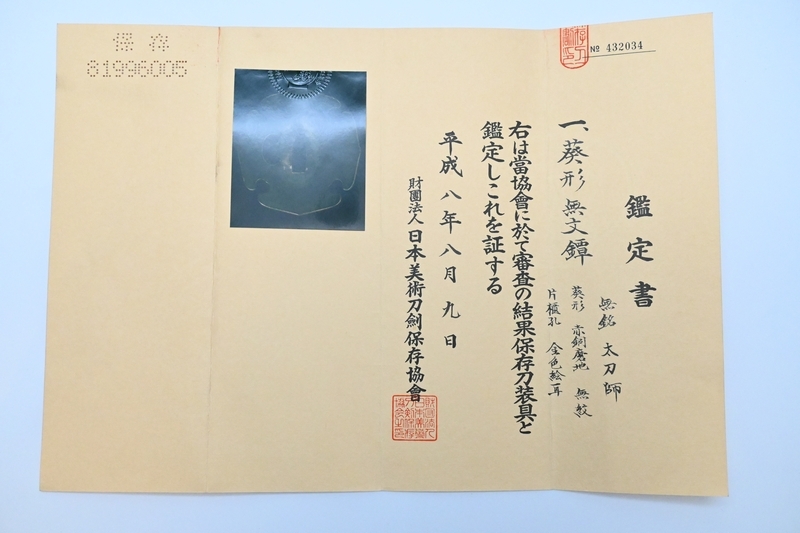 № 432034
鑑定書
一、葵形無文鐔
無銘 太刀師
葵形 赤銅磨地 無紋
片櫃孔 金色絵耳
右は當協會に於て審査の結果保存刀装具と
鑑定しこれを証する
平成八年八月九日
財團法人日本美術刀劍保存協會
保存